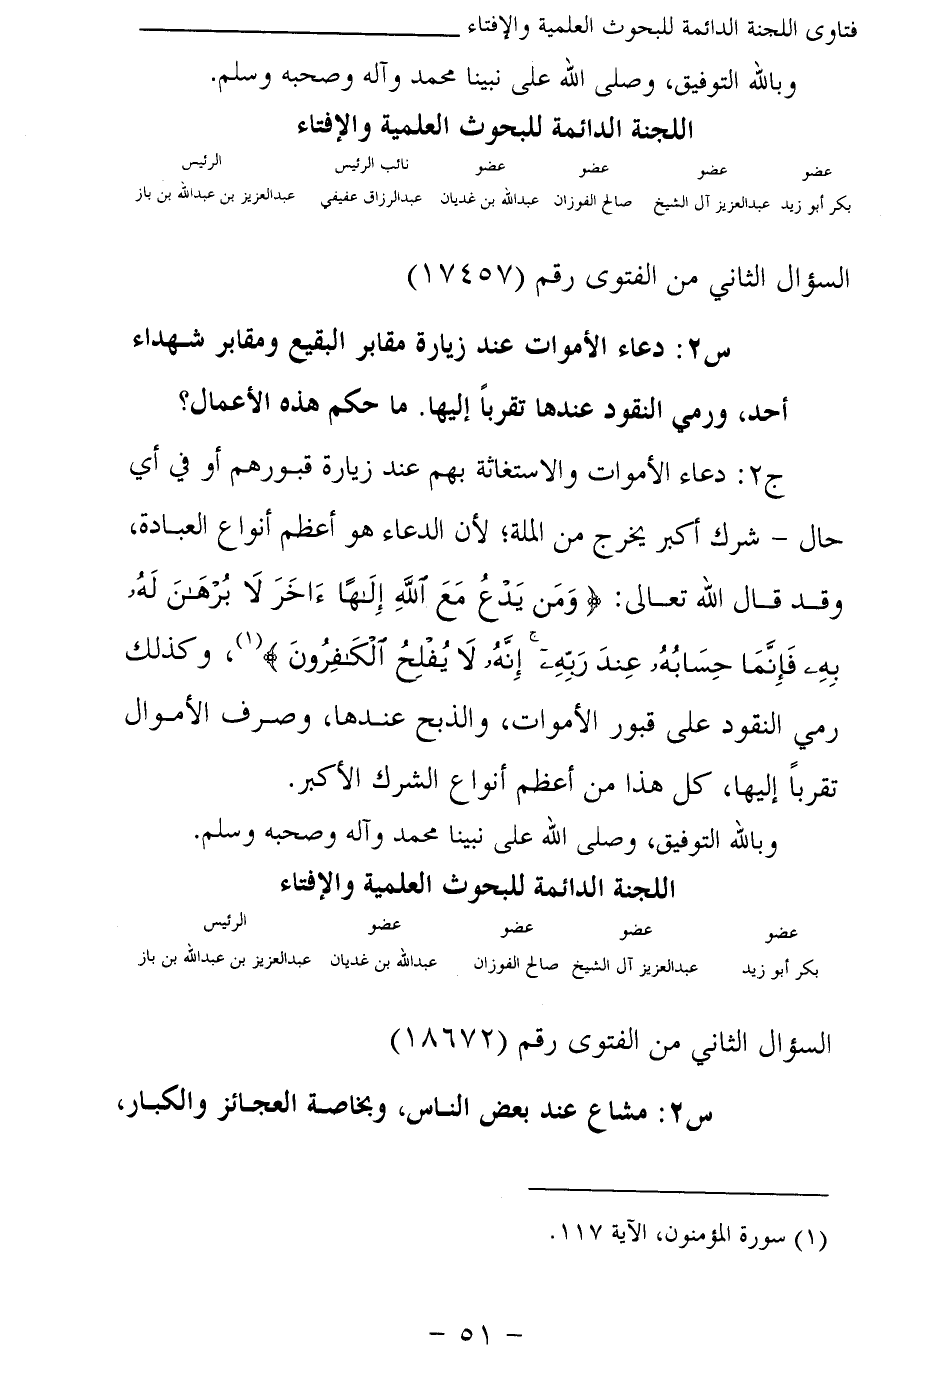 فتاوى اللجنة الدائمة للبحوث العلمية والإفتاء
وبالله التوفيق، وصلى الله على نبينا محمد وآله وصحبه وسلم.
اللجنة الدائمة للبحوث العلمية والإفتاء
عضو عضو عضو عضو نائب الرئيس الرئيس
بكر أبو زيد عبدالعزيز آل الشيخ صالح الفوزان عبدالله بن غديان عبدالرزاق عفيفي عبدالعزيز بن عبدالله بن باز
السؤال الثاني من الفتوى رقم (١٧٤٥٧)
س٢: دعاء الأموات عند زيارة مقابر البقيع ومقابر شهداء
أحد، ورمي النقود عندها تقرباً إليها. ما حكم هذه الأعمال؟
ج٢: دعاء الأموات والاستغاثة بهم عند زيارة قبورهم أو في أي
حال – شرك أكبر يخرج من الملة؛ لأن الدعاء هو أعظم أنواع العبادة،
وقد قال الله تعالى: ﴿ وَمَن يَدْعُ مَعَ ٱللَّهِ إِلَٰهًا ءَاخَرَ لَا بُرْهَٰنَ لَهُۥ
بِهِۦ فَإِنَّمَا حِسَابُهُۥ عِندَ رَبِّهِۦٓ ۚ إِنَّهُۥ لَا يُفْلِحُ ٱلْكَٰفِرُونَ ﴾(١)، وكذلك
رمي النقود على قبور الأموات، والذبح عندها، وصرف الأموال
تقرباً إليها، كل هذا من أعظم أنواع الشرك الأكبر.
وبالله التوفيق، وصلى الله على نبينا محمد وآله وصحبه وسلم.
اللجنة الدائمة للبحوث العلمية والإفتاء
عضو عضو عضو عضو الرئيس
بكر أبو زيد عبدالعزيز آل الشيخ صالح الفوزان عبدالله بن غديان عبدالعزيز بن عبدالله بن باز
السؤال الثاني من الفتوى رقم (١٨٦٧٢)
س٢: مشاع عند بعض الناس، وبخاصة العجائز والكبار،
(١) سورة المؤمنون، الآية ١١٧.
– ٥١ –